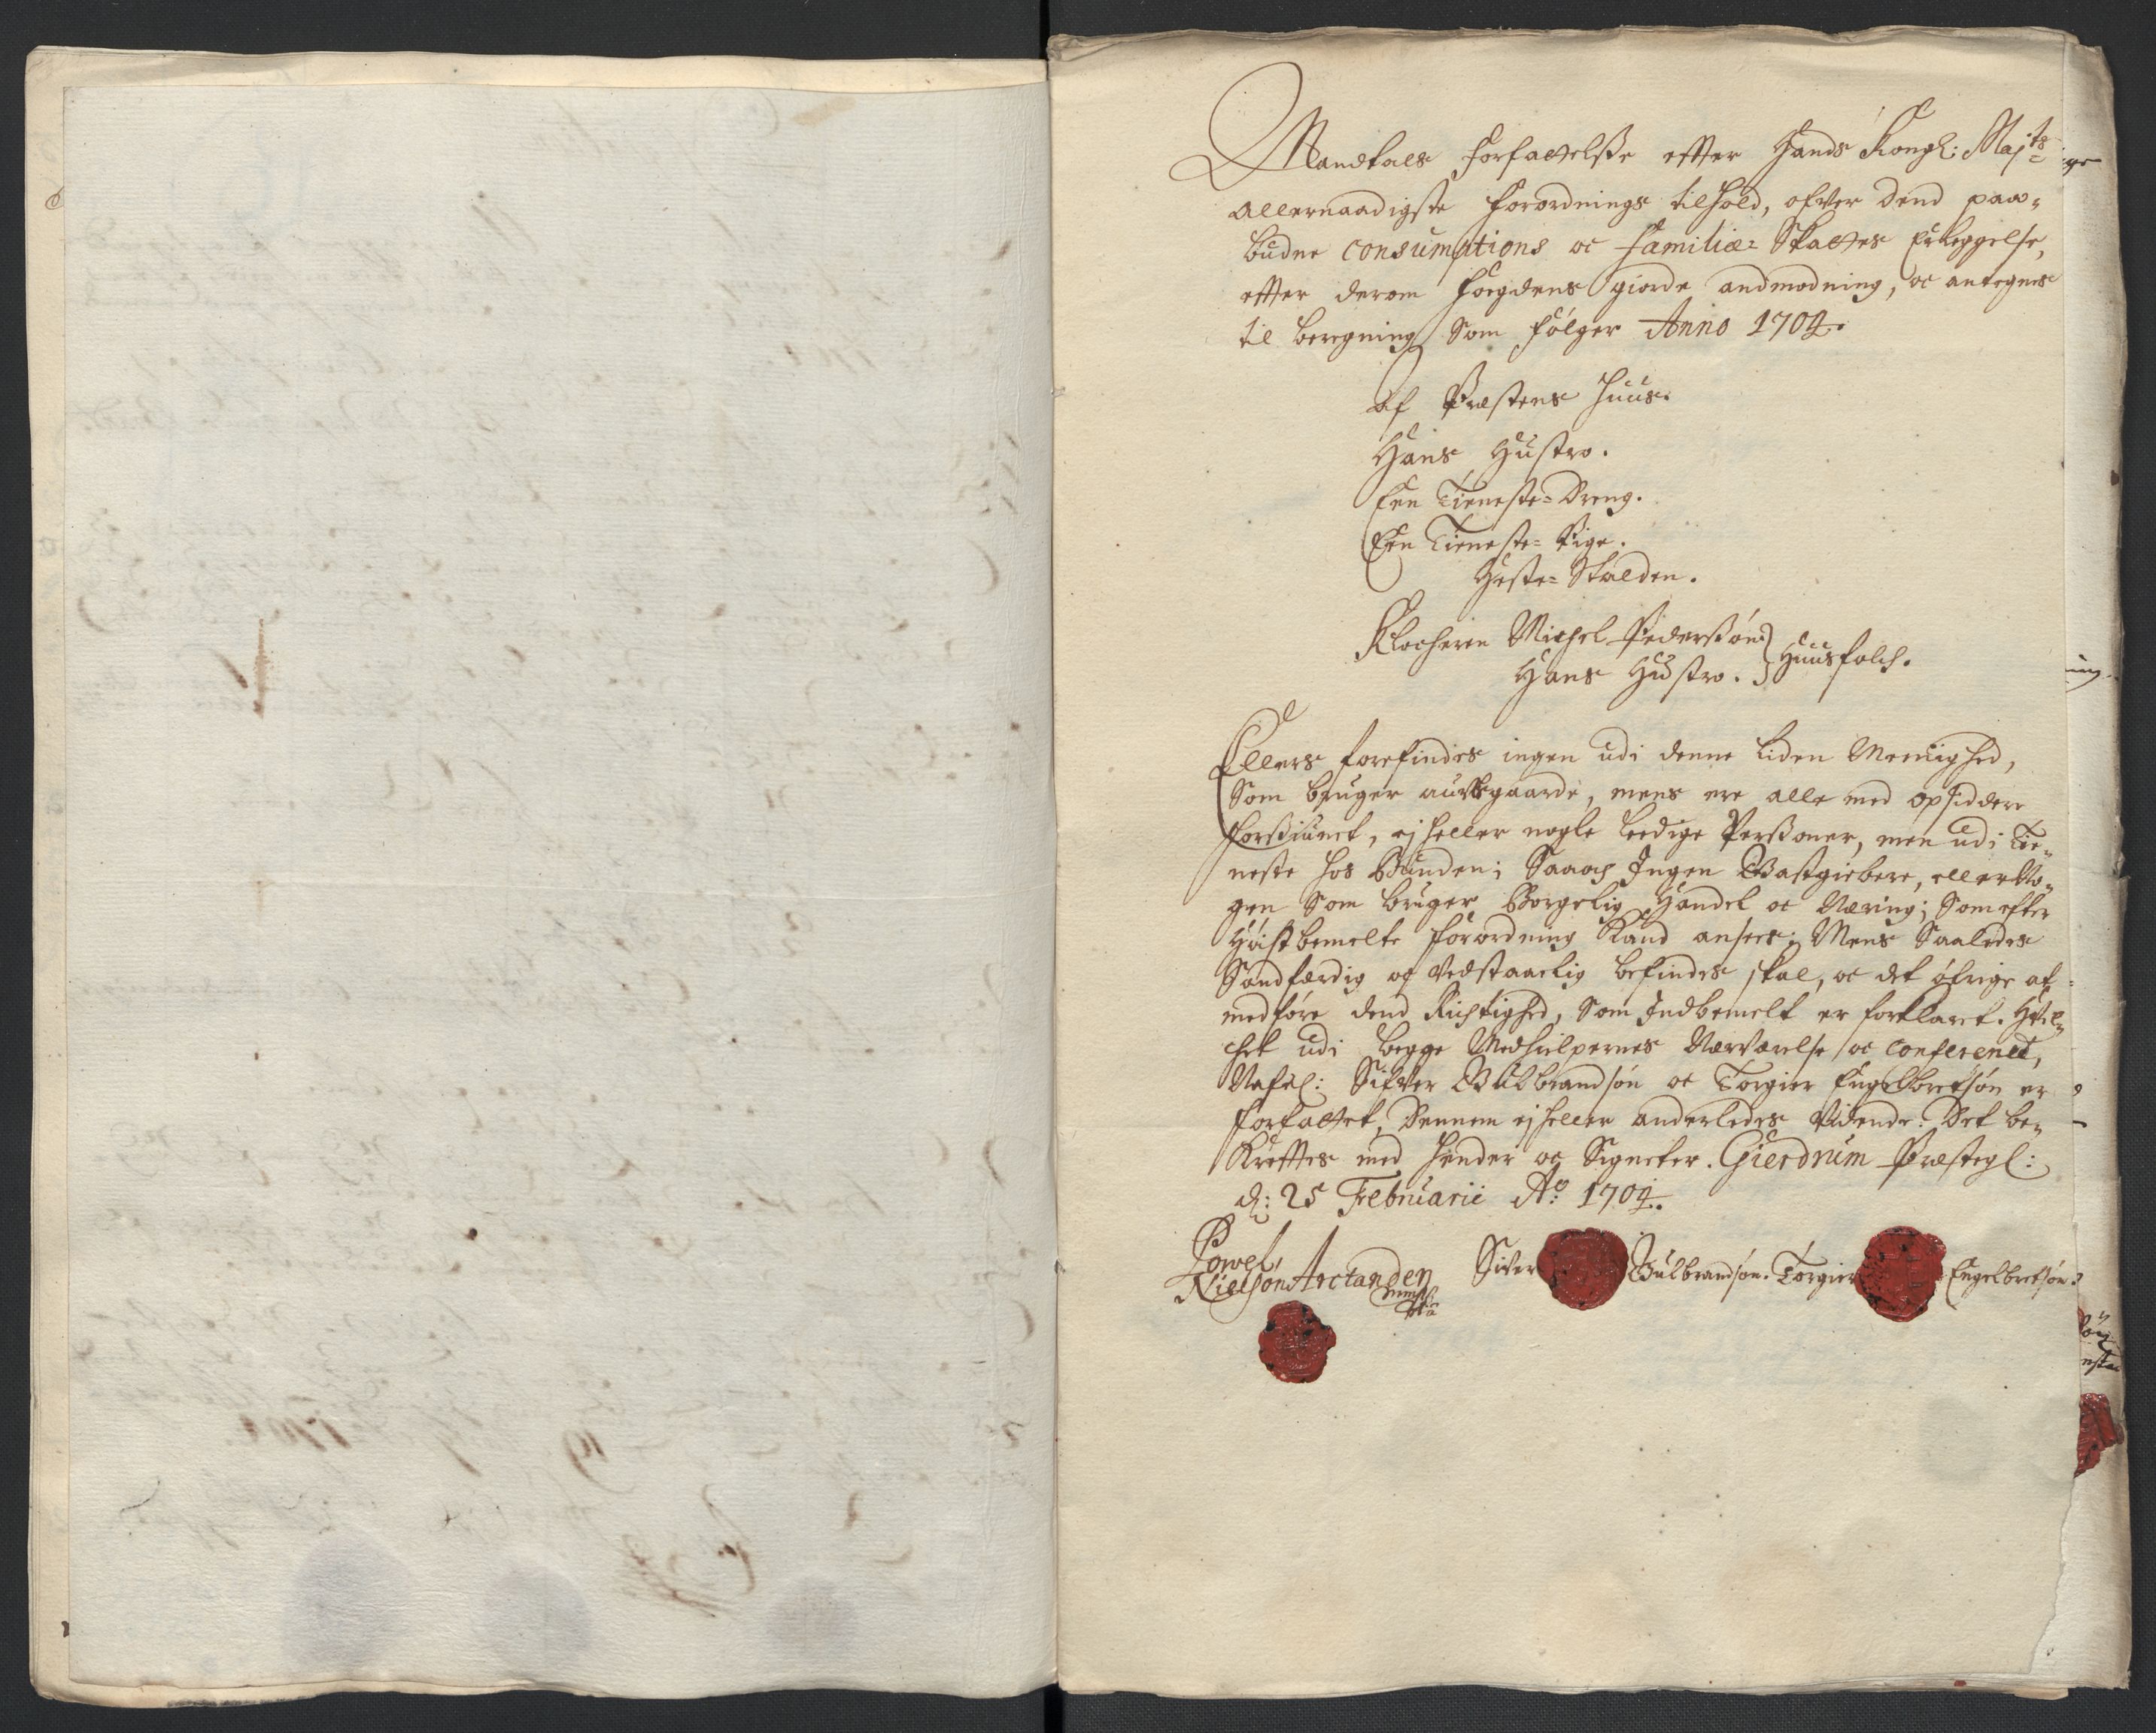 Mandtals forfattelsse effter Hands Kongl: Majts
allernaadigste forordnings tilhold, ofver dend paa-
budne Consumptions oc Familiæ- Skattes Erleggelse,
effter derom fogdens giorde andmodning, oc antegnes
til beregning Som følger Anno 1704.
Af Præstens Huus.
Hans Hustro.
Een Tieneste-Dreng.
Een Tieneste- Pige.
Heste- Skalden.
Klocheren Michel Pederssøn
Hans Hustro. Huusfolch.
Ellers forefindes ingen udi denne liden Meenighed,
Som bruger auflsgaarde, mens ere alle med opsiddere
forssiunet, ej heller nogle leedige Perssoner, men udi Tie-
neste hos Bunden; Saaoch Ingen Gastgiebere, eller No-
gen Som bruger Borgelig Handel oc Næring; Som efter
Høist bemelte forordning Kand ansees; Mens Saaledes
Sandfærdig og Vedstaaelig befindes skal, oc det øfrige at
medføre dend Rictighed, Som Indbemelt er forklaret. Hvil-
chet udi begge Medhielpernes Nærværelse oc Conference,
Nafnl: Sifver Gulbrandsøn oc Torgier Engelbretsøn er
forfattet, Dennem ej heller anderledes Vidende. Det be-
Kræfftes med Hender oc Signeter. Gierdrum Præstegl:
d: 25 Februarii Ao 1704.
Powel
Nielsøn Arctander Siver Gulbrandsøn. Torgier Engelbretsøn.
mppria